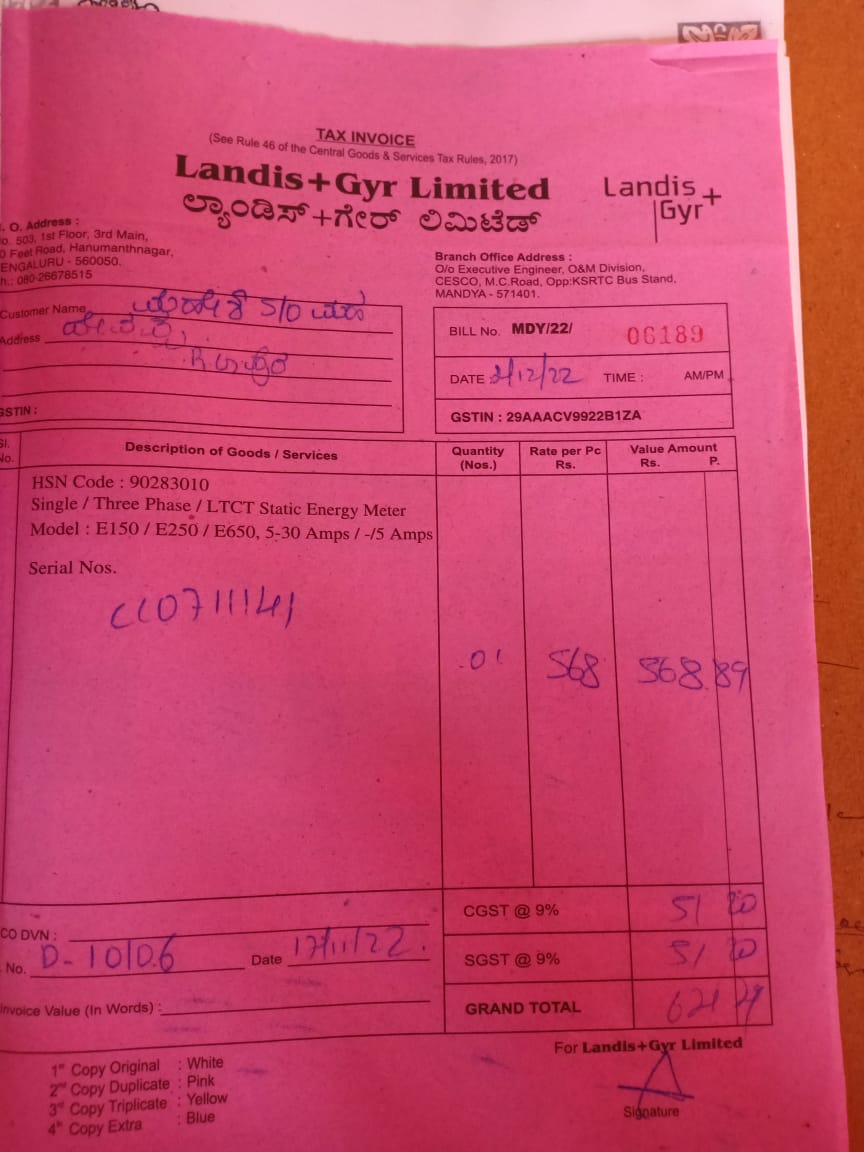 TAX INVOICE
(See Rule 46 of the Central Goods & Services Tax Rules, 2017)
Landis+Gyr Limited
ಲ್ಯಾಂಡಿಸ್+ಗೇರ್ ಲಿಮಿಟೆಡ್
Landis
Gyr+
. O. Address :
o. 503, 1st Floor, 3rd Main,
0 Feet Road, Hanumanthnagar,
ENGALURU - 560050.
h.: 080-26678515
Branch Office Address :
O/o Executive Engineer, O&M Division,
CESCO, M.C.Road, Opp:KSRTC Bus Stand,
MANDYA - 571401.
Customer Name S/O
Address
GSTIN :
BILL No. MDY/22/ 06189
DATE /12/22 TIME : AM/PM
GSTIN : 29AAACV9922B1ZA
Sl. No. Description of Goods / Services Quantity (Nos.) Rate per Pc Rs. Value Amount Rs. P.
HSN Code : 90283010
Single / Three Phase / LTCT Static Energy Meter
Model : E150 / E250 / E650, 5-30 Amps / -/5 Amps
Serial Nos.
01 568 568 89
CGST @ 9% 51 20
SGST @ 9% 51 20
GRAND TOTAL
CO DVN :
. No. D-10106 Date 17/11/22.
Invoice Value (In Words) :
For Landis+Gyr Limited
Signature
1st Copy Original : White
2nd Copy Duplicate : Pink
3rd Copy Triplicate : Yellow
4th Copy Extra : Blue